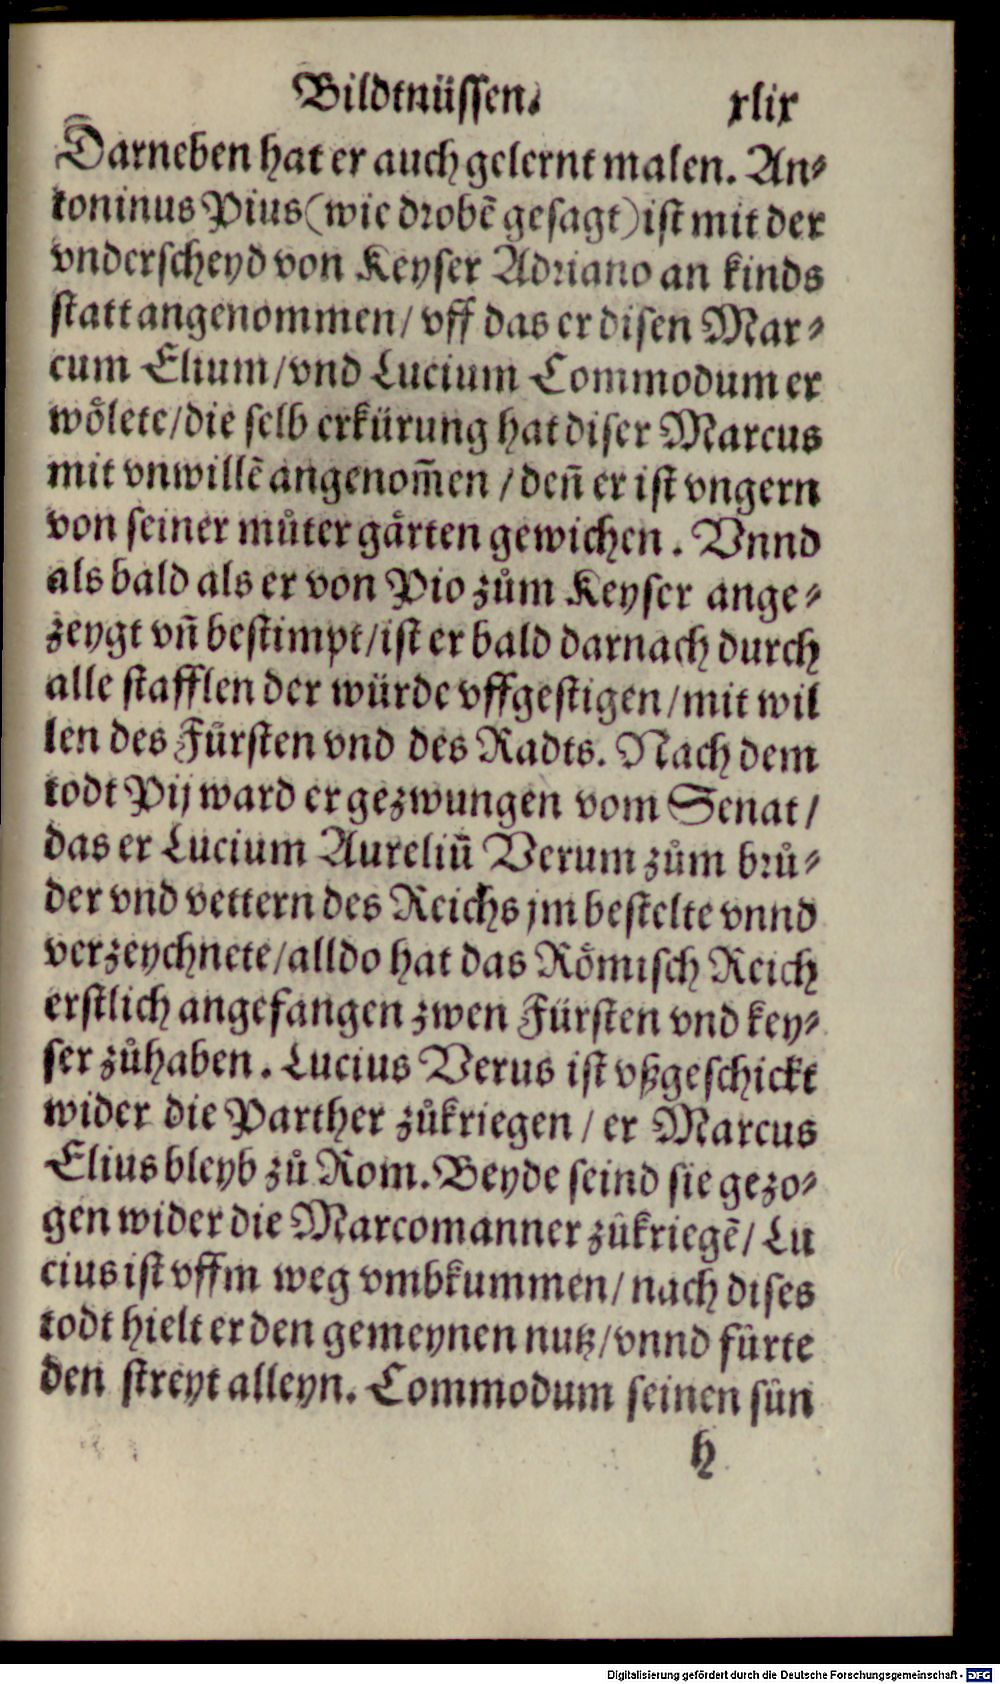 Bildtnüssen. xlix
Darneben hat er auch gelernt malen. An⸗
toninus Pius (wie drobē gesagt) ist mit der
vnderscheyd von Keyser Adriano an kinds
statt angenommen / vff das er disen Mar⸗
cum Elium / vnd Lucium Commodum er
woͤlete / die selb erkürung hat diser Marcus
mit vnwillē angenom̄en / den̄ er ist vngern
von seiner muͦter gaͤrten gewichen. Vnnd
als bald als er von Pio zuͦm Keyser ange⸗
zeygt vn̄ bestimpt / ist er bald darnach durch
alle stafflen der würde vffgestigen / mit wil
len des Fürsten vnd des Radts. Nach dem
todt Pij ward er gezwungen vom Senat /
das er Lucium Aureliū Verum zuͦm bruͦ⸗
der vnd vettern des Reichs jm bestelte vnnd
verzeychnete / alldo hat das Roͤmisch Reich
erstlich angefangen zwen Fürsten vnd key⸗
ser zuͦhaben. Lucius Verus ist vßgeschickt
wider die Parther zuͦkriegen / er Marcus
Elius bleyb zuͦ Rom. Beyde seind sie gezo⸗
gen wider die Marcomanner zuͦkriegē / Lu
cius ist vffm weg vmbkummen / nach dises
todt hielt er den gemeynen nutz / vnnd fürte
den streyt alleyn. Commodum seinen sün
h
Digitalisierung gefördert durch die Deutsche Forschungsgemeinschaft - DFG